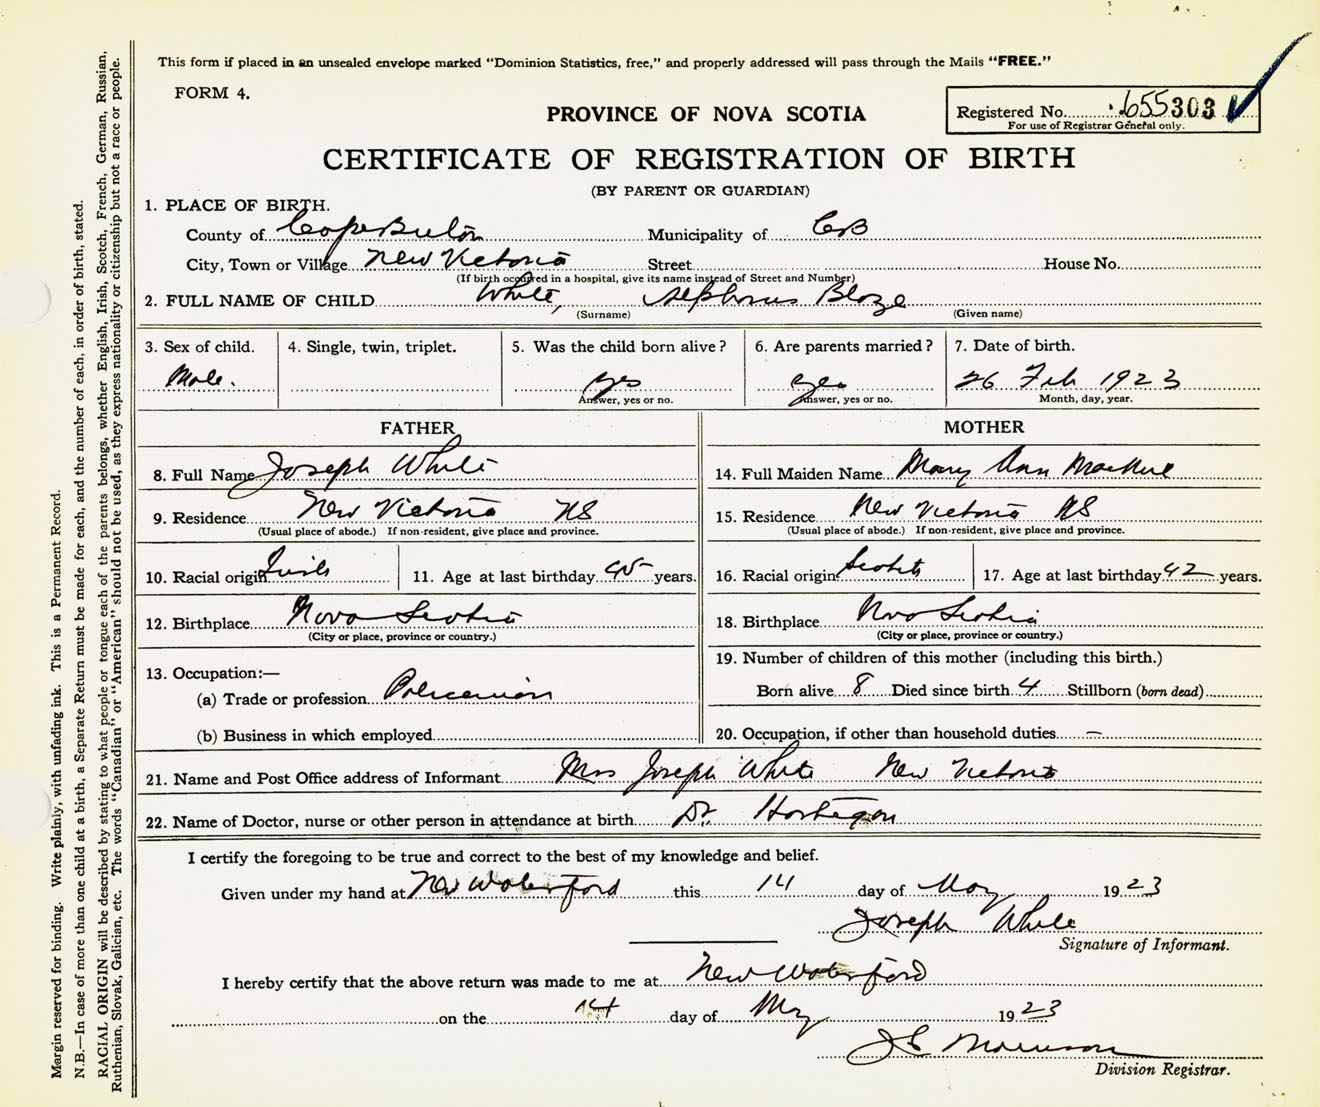 This form if placed in an unsealed envelope marked "Dominion Statistics, free," and properly addressed will pass through the Mails "FREE."
FORM 4.
PROVINCE OF NOVA SCOTIA
Registered No. 655303
For use of Registrar General only.
CERTIFICATE OF REGISTRATION OF BIRTH
(BY PARENT OR GUARDIAN)
1. PLACE OF BIRTH.
County of Cape Breton Municipality of CB
City, Town or Village New Victoria Street House No.
(If birth occurred in a hospital, give its name instead of Street and Number)
2. FULL NAME OF CHILD White, Alphonus Blaze
(Surname) (Given name)
3. Sex of child. 4. Single, twin, triplet. 5. Was the child born alive? 6. Are parents married? 7. Date of birth.
Male. yes yes 26 Feb 1923
Answer, yes or no. Answer, yes or no. Month, day, year.
FATHER MOTHER
8. Full Name Joseph White
14. Full Maiden Name Mary Ann
9. Residence New Victoria NS
(Usual place of abode.) If non-resident, give place and province.
15. Residence New Victoria NS
(Usual place of abode.) If non-resident, give place and province.
10. Racial origin Irish 11. Age at last birthday 45 years.
16. Racial origin Scotch 17. Age at last birthday 42 years.
12. Birthplace Nova Scotia
(City or place, province or country.)
18. Birthplace Nova Scotia
(City or place, province or country.)
13. Occupation:—
(a) Trade or profession Policeman
(b) Business in which employed
19. Number of children of this mother (including this birth.)
Born alive 8 Died since birth 4 Stillborn (born dead)
20. Occupation, if other than household duties —
21. Name and Post Office address of Informant Mrs Joseph White New Victoria
22. Name of Doctor, nurse or other person in attendance at birth Dr.
I certify the foregoing to be true and correct to the best of my knowledge and belief.
Given under my hand at New Waterford this 14 day of May 1923
Joseph White
Signature of Informant.
I hereby certify that the above return was made to me at New Waterford
on the 14 day of May 1923
J Morrison
Division Registrar.
Margin reserved for binding. Write plainly, with unfading ink. This is a Permanent Record.
N.B.—In case of more than one child at a birth, a Separate Return must be made for each, and the number of each, in order of birth, stated.
RACIAL ORIGIN will be described by stating to what people or tongue each of the parents belongs, whether English, Irish, Scotch, French, German, Russian,
Ruthenian, Slovak, Galician, etc. The words "Canadian" or "American" should not be used, as they express nationality or citizenship but not a race or people.